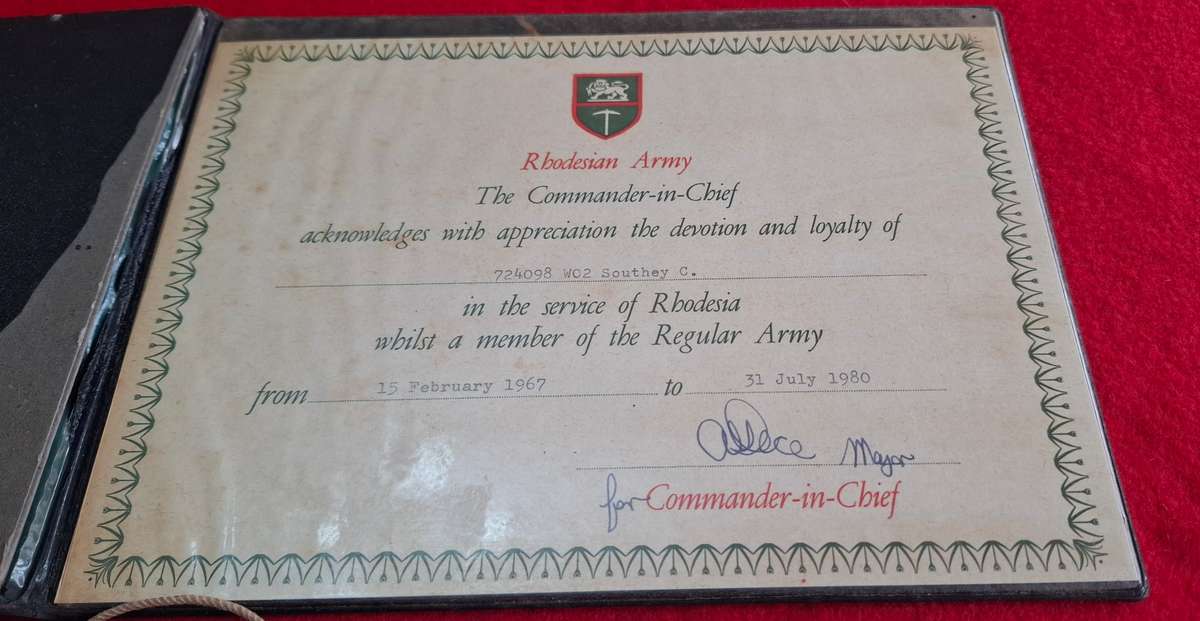 Rhodesian Army
The Commander-in-Chief
acknowledges with appreciation the devotion and loyalty of
724098 WO2 Southey C.
in the service of Rhodesia
whilst a member of the Regular Army
from 15 February 1967 to 31 July 1980
Major
for Commander-in-Chief